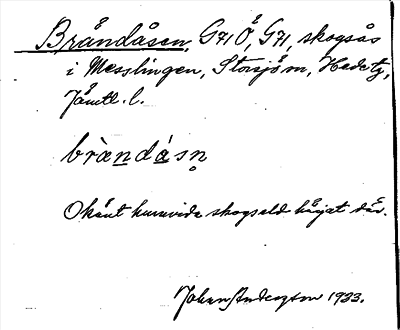 Bråndåsen, G71Ö, G71, skogsås
i Messlingen, Storsjö sn, Hede tg,
Jämtl. l.
bràndásn̥
Okänt huruvida skogseld härjat där.
Johan Anderson 1933.